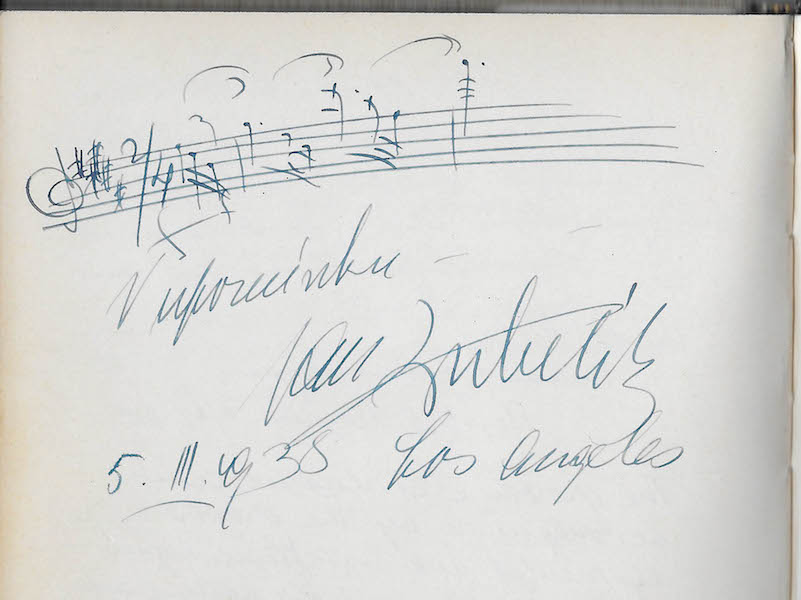 2/4
V upomínku –
Jan Kubelík
5. III. 1938 Los Angeles